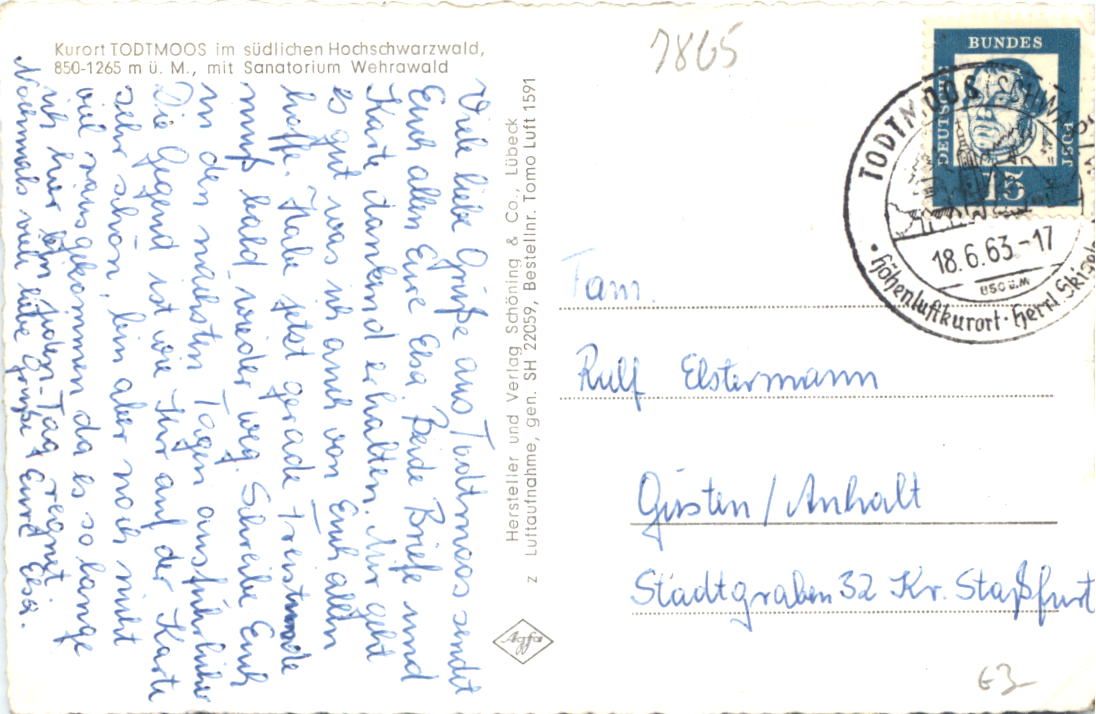 Kurort TODTMOOS im südlichen Hochschwarzwald,
850-1265 m ü. M., mit Sanatorium Wehrawald
Viele liebe Grüße aus Todtmoos sendet
Euch allen Eure Elsa. Beide Briefe und
Karte dankend erhalten. Mir geht
es gut was ich auch von Euch allen
hoffe. Habe jetzt gerade Freistunde
muß bald wieder weg. Schreibe Euch
in den nächsten Tagen ausführlicher
Die Gegend ist wie Ihr auf der Karte
sehr schön, bin aber noch nicht
viel rausgekommen da es so lange
ich hier bin jeden Tag regnet.
Nochmals viele liebe Grüße Eure Elsa.
Hersteller und Verlag Schöning & Co., Lübeck
z Luftaufnahme, gen. SH 22059, Bestellnr. Tomo Luft 1591
Agfa
7865
DEUTSCHE
BUNDES
POST
15
TODTMOOS SCHW
18.6.63-17
850 ü.M
Höhenluftkurort · Herrl. Skigel
Fam.
Rulf Elstermann
Güsten / Anhalt
Stadtgraben 32 Kr. Staßfurt
63